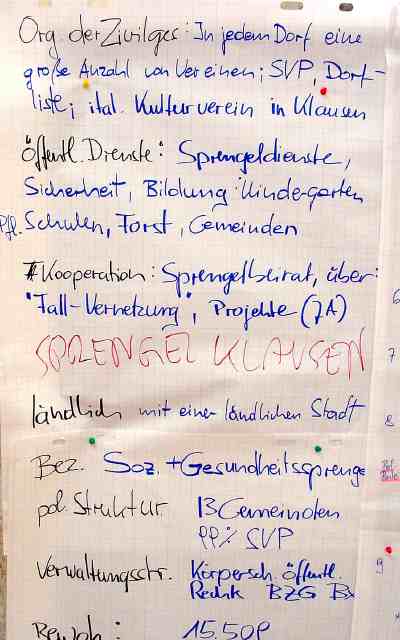 Org. der Zivilges.: In jedem Dorf eine
große Anzahl von Vereinen; SVP, Dorf-
liste; ital. Kulturverein in Klausen
öffentl. Dienste: Sprengeldienste,
Sicherheit, Bildung: Kindergarten,
Pfl. Schulen, Forst, Gemeinden
Kooperation: Sprengelbeirat, über:
"Fall-Vernetzung", Projekte (JA)
SPRENGEL KLAUSEN
ländlich mit einer ländlichen Stadt
Bez. Soz. + Gesundheitssprenge
pol. Struktur 13 Gemeinden
99% SVP
Verwaltungsstr. Körpersch. öffentl.
Rechts BZG
Bewoh: 15.509
6
7
8
9